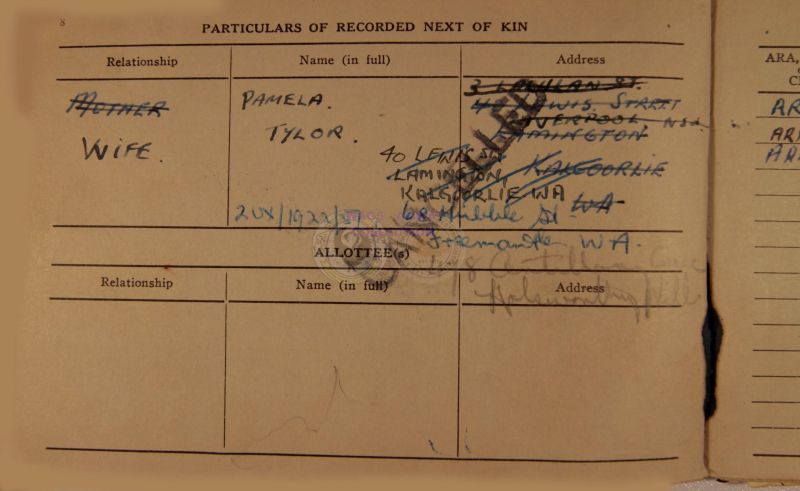 8
PARTICULARS OF RECORDED NEXT OF KIN
Relationship
Name (in full)
Address
MOTHER
WIFE.
PAMELA.
TYLOR.
3 LACHLAN ST.
40 LEWIS STREET
LIVERPOOL, NSW
LAMINGTON,
KALGOORLIE
WA
40 LEWIS ST
LAMINGTON,
KALGOORLIE WA
68 Hibble St
Freemantle W A.
CANCELLED
ALLOTTEE(s)
Relationship
Name (in full)
Address
Holsworthy
ARA,
C
AR
ARA
ARA